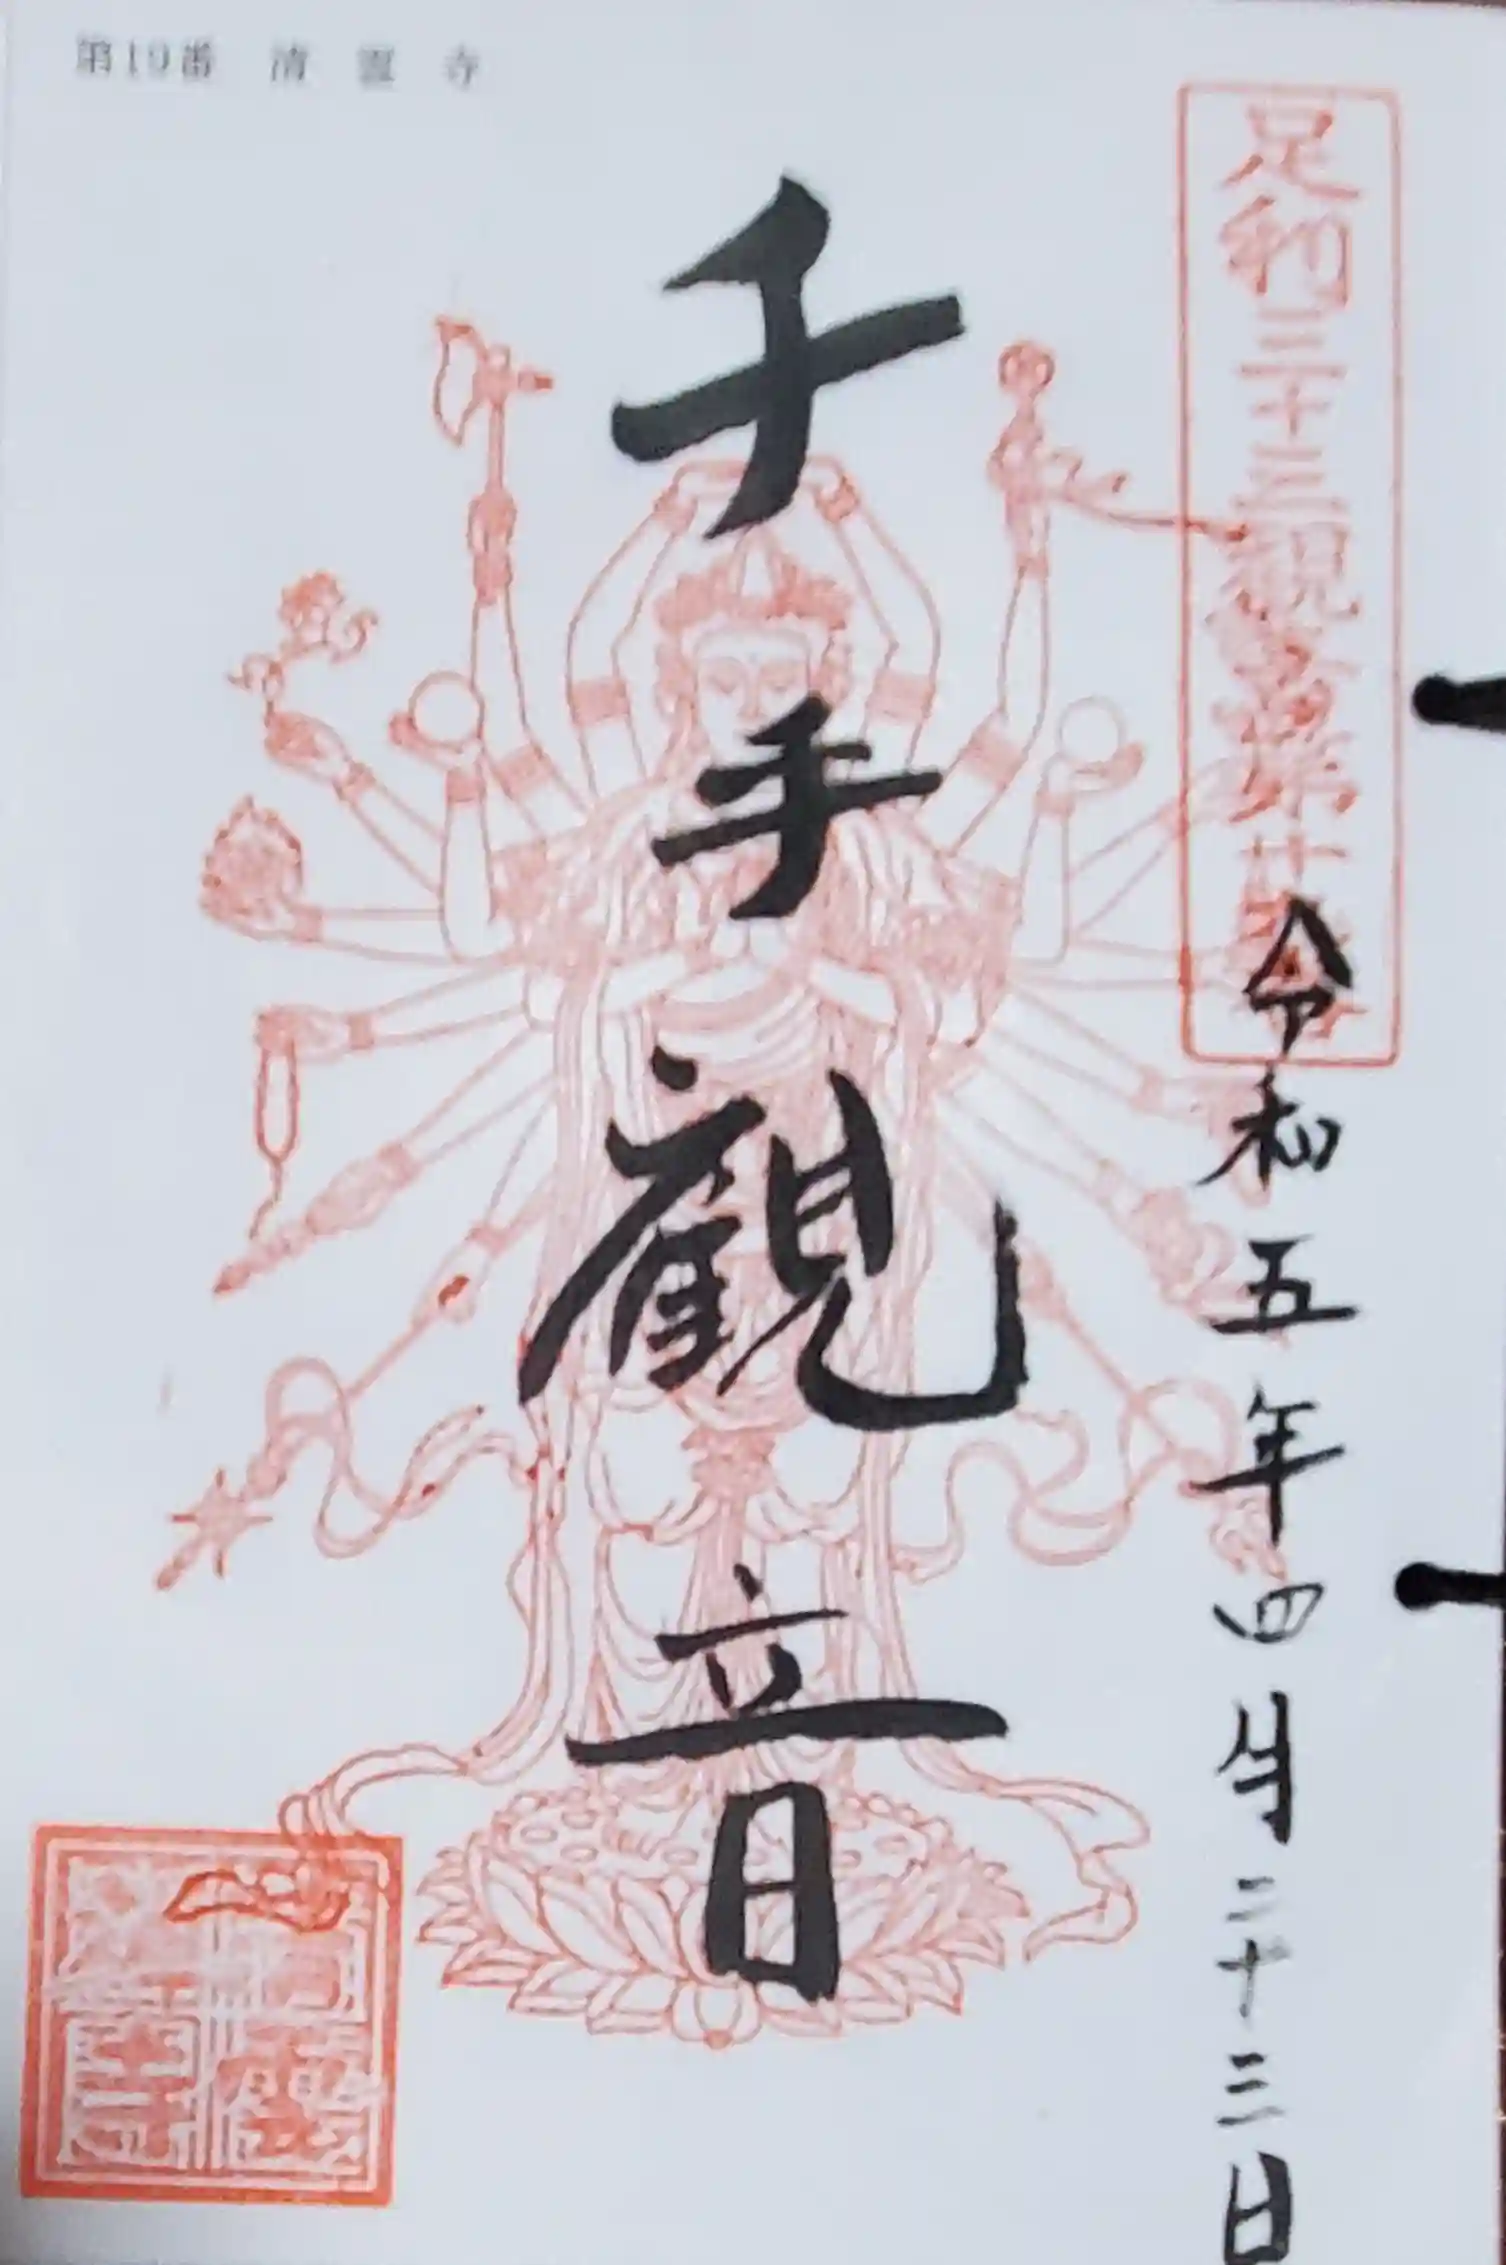 第19番 清雲寺
足利三十三観音霊場第十九番
千手觀音
令和五年四月二十三日